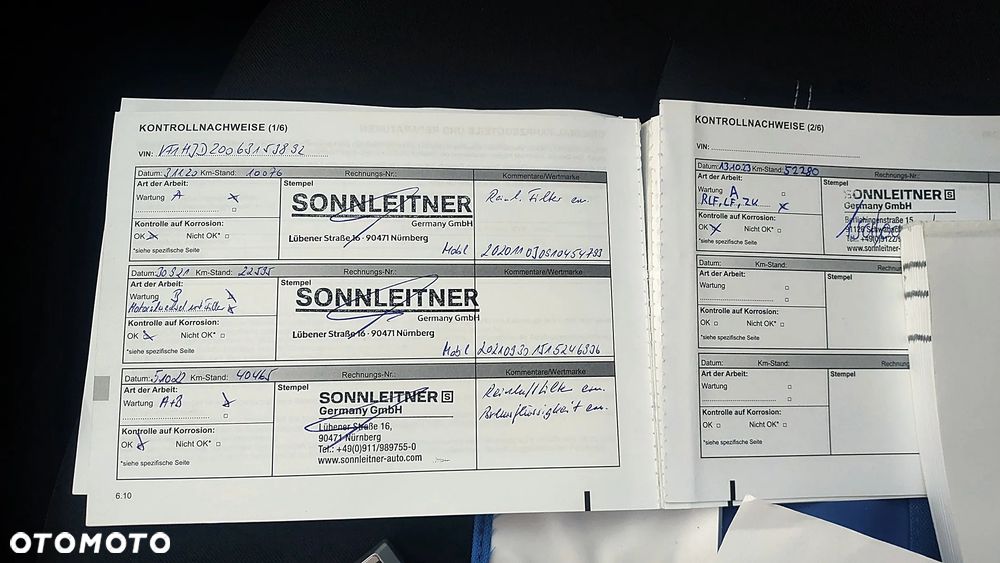 KONTROLLNACHWEISE (1/6)
VIN: VF1HJD20063153832
Datum: 31120 Km-Stand: 10076 Rechnungs-Nr.: Kommentare/Wertmarke
Art der Arbeit: Stempel
Wartung A
SONNLEITNER
Germany GmbH
Lübener Straße 16 · 90471 Nürnberg
Kontrolle auf Korrosion:
OK Nicht OK*
*siehe spezifische Seite
Filter em.
Mobil
Datum: 30921 Km-Stand: 22595 Rechnungs-Nr.: Kommentare/Wertmarke
Art der Arbeit: Stempel
Wartung B
SONNLEITNER
Germany GmbH
Lübener Straße 16 · 90471 Nürnberg
Kontrolle auf Korrosion:
OK Nicht OK*
*siehe spezifische Seite
Mobil
Datum: 51022 Km-Stand: 40465 Rechnungs-Nr.: Kommentare/Wertmarke
Art der Arbeit: Stempel
Wartung A+B
SONNLEITNER S
Germany GmbH
Lübener Straße 16,
90471 Nürnberg
Tel.: +49(0)911/989755-0
www.sonnleitner-auto.com
Kontrolle auf Korrosion:
OK Nicht OK*
*siehe spezifische Seite
Reinluftfilter em.
Bremsflüssigkeit em.
6.10
KONTROLLNACHWEISE (2/6)
VIN:
Datum: 13.10.23 Km-Stand: 52280
Art der Arbeit: Stempel
Wartung A
RLF, LF, ZK
SONNLEITNER S
Germany GmbH
Kontrolle auf Korrosion:
OK Nicht OK*
*siehe spezifische Seite
Datum: Km-Stand:
Art der Arbeit: Stempel
Wartung
Kontrolle auf Korrosion:
OK Nicht OK*
*siehe spezifische Seite
Datum: Km-Stand:
Art der Arbeit: Stempel
Wartung
Kontrolle auf Korrosion:
OK Nicht OK*
*siehe spezifische Seite
OTOMOTO